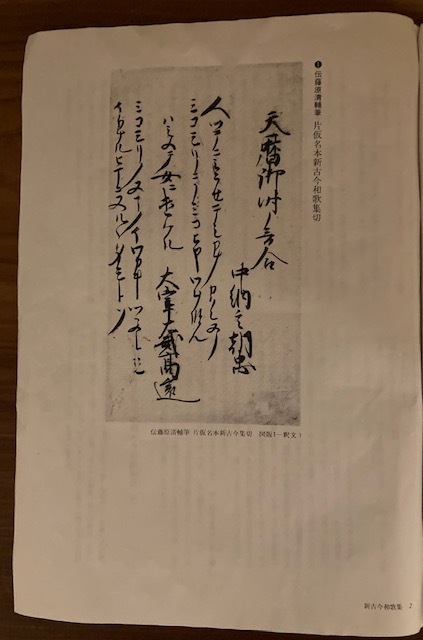 ❶ 伝藤原清輔筆 片仮名本新古今和歌集切
天暦御時哥合
中納言朝忠
人ツテニシラセテシカナカクレヌノ
ミコモリニノミコヒヤワタラん
ハシメテ女ニ遣ケル 大宰大貳高遠
ミコモリノヌマノイワカキツヽメトモ
イカナルヒマニヌルヽタモトソ
伝藤原清輔筆 片仮名本新古今集切
新古今和歌集 2